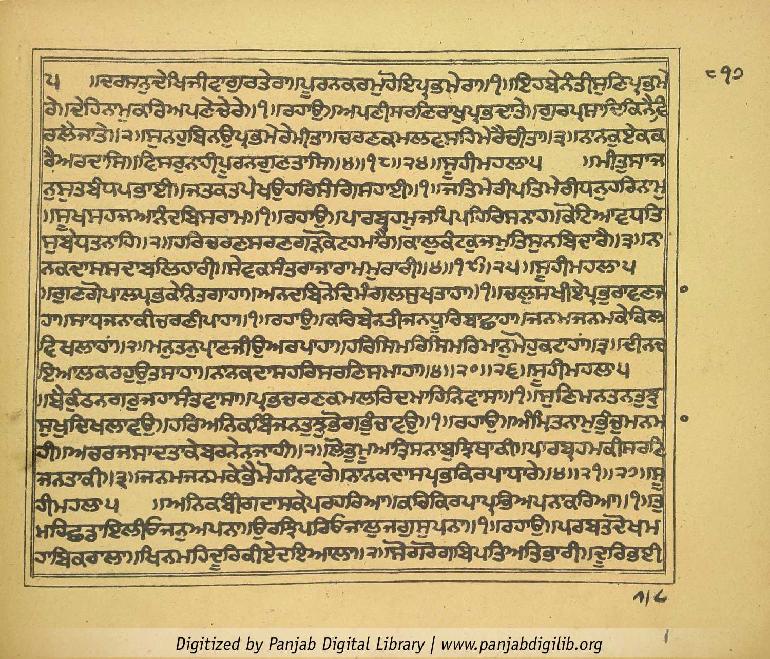 ੫ ॥ਦਰਸਨੁਦੇਖਿਜੀਵਾਗੁਰਤੇਰਾ॥ਪੂਰਨਕਰਮੁਹੋਇਪ੍ਰਭਮੇਰਾ॥੧॥ਇਹਬੇਨੰਤੀਸੁਣਿਪ੍ਰਭਮੇ
ਰੇ॥ਦੇਹਿਨਾਮੁਕਰਿਅਪਣੇਚੇਰੇ॥੧॥ਰਹਾਉ॥ਅਪਣੀਸਰਣਿਰਾਖੁਪ੍ਰਭਦਾਤੇ॥ਗੁਰਪ੍ਰਸਾਦਿਕਿਨੈਵਿ
ਰਲੈਜਾਤੇ॥੨॥ਸੁਨਹੁਬਿਨਉਪ੍ਰਭਮੇਰੇਮੀਤਾ॥ਚਰਣਕਮਲਵਸਹਿਮੇਰੈਚੀਤਾ॥੩॥ਨਾਨਕੁਏਕਕ
ਰੈਅਰਦਾਸਿ॥ਵਿਸਰੁਨਾਹੀਪੂਰਨਗੁਣਤਾਸਿ॥੪॥੧੮॥੨੪॥ਸੂਹੀਮਹਲਾ੫ ॥ਮੀਤੁਸਾਜ
ਨੁਸੁਤਬੰਧਪਭਾਈ॥ਜਤਕਤਪੇਖਉਹਰਿਸੰਗਿਸਹਾਈ॥੧॥ਜਤਿਮੇਰੀਪਤਿਮੇਰੀਧਨੁਹਰਿਨਾਮੁ
॥ਸੂਖਸਹਜਆਨੰਦਬਿਸਰਾਮ॥੧॥ਰਹਾਉ॥ਪਾਰਬ੍ਰਹਮੁਜਪਿਪਹਿਰਿਸਨਾਹ॥ਕੋਟਿਆਵਧਤਿ
ਸੁਬੇਧਤਨਾਹਿ॥੨॥ਹਰਿਚਰਣਸਰਣਗੜਕੋਟਹਮਾਰੈ॥ਕਾਲੁਕੰਟਕੁਜਮੁਤਿਸੁਨਬਿਦਾਰੈ॥੩॥ਨਾ
ਨਕਦਾਸਸਦਾਬਲਿਹਾਰੀ॥ਸੇਵਕਸੰਤਰਾਜਾਰਾਮਮੁਰਾਰੀ॥੪॥੧੯॥੨੫॥ਸੂਹੀਮਹਲਾ੫
॥ਗੁਣਗੋਪਾਲਪ੍ਰਭਕੇਨਿਤਗਾਹਾ॥ਅਨਦਬਿਨੋਦਮੰਗਲਸੁਖਤਾਹਾ॥੧॥ਚਲੁਸਖੀਏਪ੍ਰਭੁਰਾਵਣਜਾ
ਹਾ॥ਸਾਧਜਨਾਕੀਚਰਣੀਪਾਹਾ॥੧॥ਰਹਾਉ॥ਕਰਿਬੇਨਤੀਜਨਧੂਰਿਬਾਛਾਹਾ॥ਜਨਮਜਨਮਕੇਕਿਲ
ਵਿਖਲਾਹਾਂ॥੨॥ਮਨੁਤਨੁਪ੍ਰਾਣਜੀਉਅਰਪਾਹਾ॥ਹਰਿਸਿਮਰਿਸਿਮਰਿਮਾਨੁਮੋਹੁਕਟਾਹਾਂ॥੩॥ਦੀਨਦ
ਇਆਲਕਰਹੁਉਤਸਾਹਾ॥ਨਾਨਕਦਾਸਹਰਿਸਰਣਿਸਮਾਹਾ॥੪॥੨੦॥੨੬॥ਸੂਹੀਮਹਲਾ੫
॥ਬੈਕੁੰਠਨਗਰੁਜਹਾਸੰਤਵਾਸਾ॥ਪ੍ਰਭਚਰਣਕਮਲਰਿਦਮਾਹਿਨਿਵਾਸਾ॥੧॥ਸੁਣਿਮਨਤਨਤੁਝੁ
ਸੁਖੁਦਿਖਲਾਵਉ॥ਹਰਿਅਨਿਕਬਿੰਜਨਤੁਝੁਭੋਗਭੁੰਚਾਵਉ॥੧॥ਰਹਾਉ॥ਅੰਮ੍ਰਿਤਨਾਮੁਭੁੰਚੁਮਨਮਾ
ਹੀ॥ਅਚਰਜਸਾਦਤਾਕੇਬਰਨੇਨਜਾਹੀ॥੨॥ਲੋਭੁਮੂਆਤ੍ਰਿਸਨਾਬੁਝਿਥਾਕੀ॥ਪਾਰਬ੍ਰਹਮਕੀਸਰਣਿ
ਜਨਤਾਕੀ॥੩॥ਜਨਮਜਨਮਕੇਭੈਮੋਹਨਿਵਾਰੇ॥ਨਾਨਕਦਾਸਪ੍ਰਭਕਿਰਪਾਧਾਰੇ॥੪॥੨੧॥੨੭॥ਸੂ
ਹੀਮਹਲਾ੫ ॥ਅਨਿਕਬੀਂਗਦਾਸਕੇਪਰਹਰਿਆ॥ਕਰਿਕਿਰਪਾਪ੍ਰਭਿਅਪਨਾਕਰਿਆ॥੧॥ਤੁ
ਮਹਿਛਡਾਇਲੀਓਜਨੁਅਪਨਾ॥ਉਰਝਿਪਰਿਓਜਾਲੁਜਗੁਸੁਪਨਾ॥੧॥ਰਹਾਉ॥ਪਰਬਤਦੋਖਮ
ਹਾਬਿਕਰਾਲਾ॥ਖਿਨਮਹਿਦੂਰਿਕੀਏਦਇਆਲਾ॥੨॥ਸੋਗਰੋਗਬਿਪਤਿਅਤਿਭਾਰੀ॥ਦੂਰਿਭਈ
Digitized by Panjab Digital Library | www.panjabdigilib.org